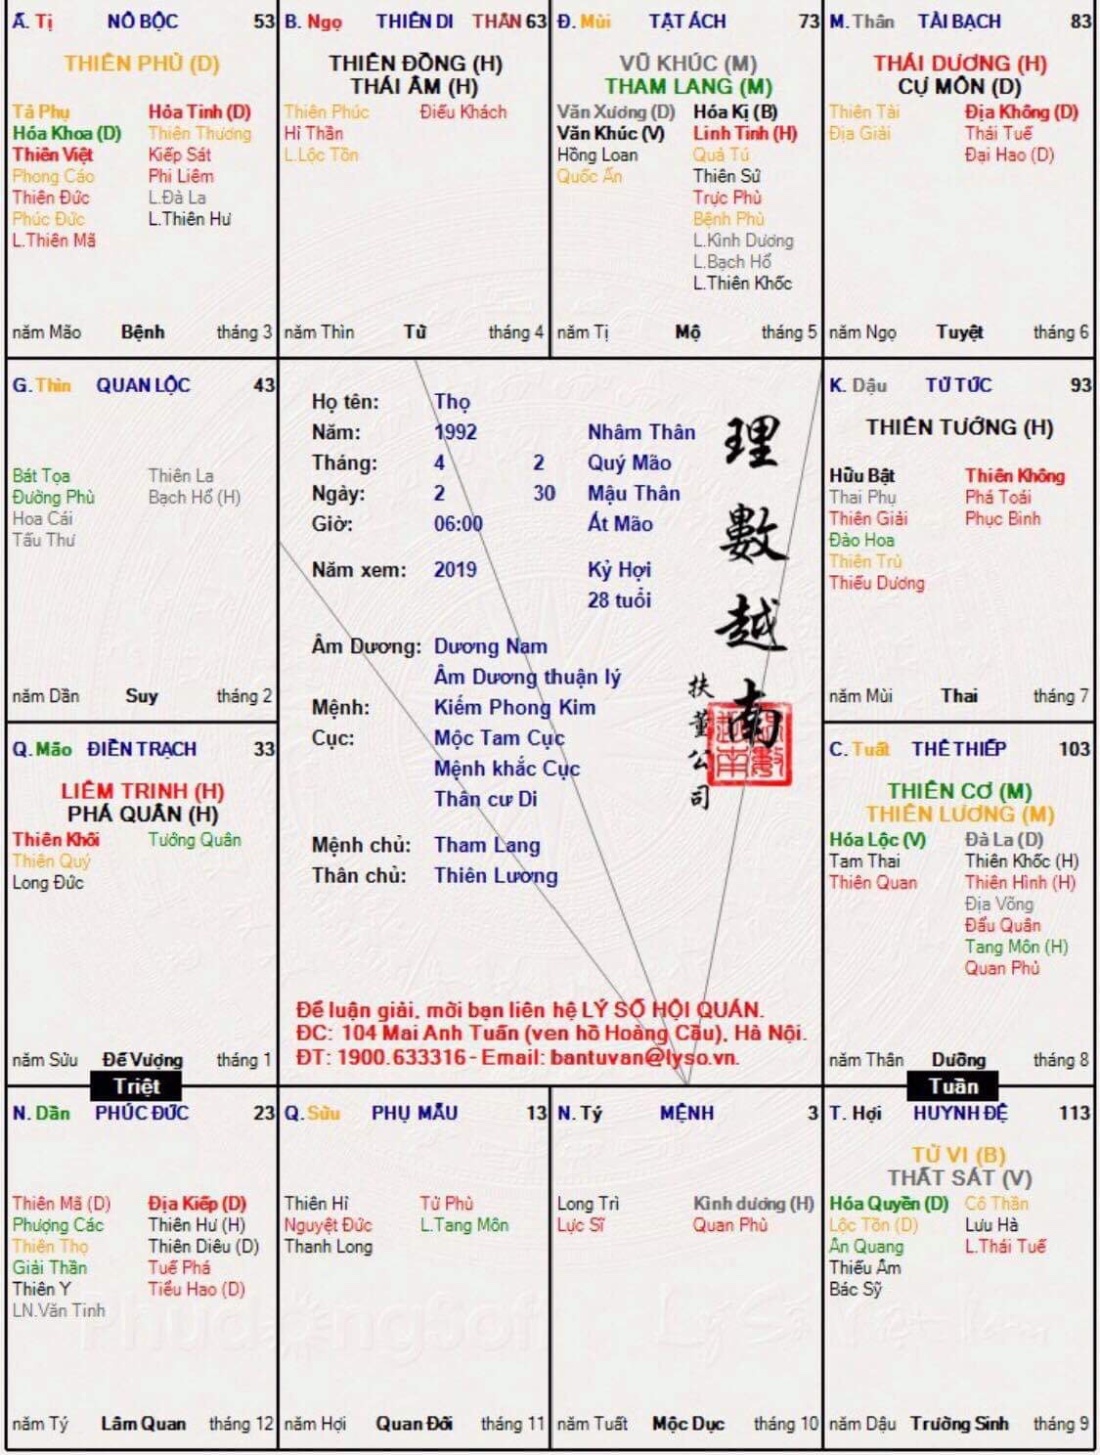 Ấ. Tị NÔ BỘC 53
THIÊN PHỦ (D)
Tả Phụ Hỏa Tinh (D)
Hóa Khoa (D) Thiên Thương
Thiên Việt Kiếp Sát
Phong Cáo Phi Liêm
Thiên Đức L.Đà La
Phúc Đức L.Thiên Hư
L.Thiên Mã
năm Mão Bệnh tháng 3
B. Ngọ THIÊN DI THÂN 63
THIÊN ĐỒNG (H)
THÁI ÂM (H)
Thiên Phúc Điếu Khách
Hỉ Thần
L.Lộc Tồn
năm Thìn Tử tháng 4
Đ. Mùi TẬT ÁCH 73
VŨ KHÚC (M)
THAM LANG (M)
Văn Xương (D) Hóa Kị (B)
Văn Khúc (V) Linh Tinh (H)
Hồng Loan Quả Tú
Quốc Ấn Thiên Sứ
Trực Phù
Bệnh Phù
L.Kình Dương
L.Bạch Hổ
L.Thiên Khốc
năm Tị Mộ tháng 5
M. Thân TÀI BẠCH 83
THÁI DƯƠNG (H)
CỰ MÔN (D)
Thiên Tài Địa Không (D)
Địa Giải Thái Tuế
Đại Hao (D)
năm Ngọ Tuyệt tháng 6
G. Thìn QUAN LỘC 43
Bát Tọa Thiên La
Đường Phù Bạch Hổ (H)
Hoa Cái
Tấu Thư
năm Dần Suy tháng 2
Họ tên: Thọ
Năm: 1992 Nhâm Thân
Tháng: 4 2 Quý Mão
Ngày: 2 30 Mậu Thân
Giờ: 06:00 Ất Mão
Năm xem: 2019 Kỷ Hợi
28 tuổi
Âm Dương: Dương Nam
Âm Dương thuận lý
Mệnh: Kiếm Phong Kim
Cục: Mộc Tam Cục
Mệnh khắc Cục
Thân cư Di
Mệnh chủ: Tham Lang
Thân chủ: Thiên Lương
理數越南
扶董公司
Để luận giải, mời bạn liên hệ LÝ SỐ HỘI QUÁN.
ĐC: 104 Mai Anh Tuấn (ven hồ Hoàng Cầu), Hà Nội.
ĐT: 1900.633316 - Email: bantuvan@lyso.vn.
K. Dậu TỬ TỨC 93
THIÊN TƯỚNG (H)
Hữu Bật Thiên Không
Thai Phụ Phá Toái
Thiên Giải Phục Binh
Đào Hoa
Thiên Trù
Thiếu Dương
năm Mùi Thai tháng 7
Q. Mão ĐIỀN TRẠCH 33
LIÊM TRINH (H)
PHÁ QUÂN (H)
Thiên Khôi Tướng Quân
Thiên Quý
Long Đức
năm Sửu Đế Vượng tháng 1
C. Tuất THÊ THIẾP 103
THIÊN CƠ (M)
THIÊN LƯƠNG (M)
Hóa Lộc (V) Đà La (D)
Tam Thai Thiên Khốc (H)
Thiên Quan Thiên Hình (H)
Địa Võng
Đẩu Quân
Tang Môn (H)
Quan Phủ
năm Thân Dưỡng tháng 8
Triệt
Tuần
N. Dần PHÚC ĐỨC 23
Thiên Mã (D) Địa Kiếp (D)
Phượng Các Thiên Hư (H)
Thiên Thọ Thiên Diêu (D)
Giải Thần Tuế Phá
Thiên Y Tiểu Hao (D)
LN.Văn Tinh
năm Tý Lâm Quan tháng 12
Q. Sửu PHỤ MẪU 13
Thiên Hỉ Tử Phù
Nguyệt Đức L.Tang Môn
Thanh Long
năm Hợi Quan Đới tháng 11
N. Tý MỆNH 3
Long Trì Kình dương (H)
Lực Sĩ Quan Phù
năm Tuất Mộc Dục tháng 10
T. Hợi HUYNH ĐỆ 113
TỬ VI (B)
THẤT SÁT (V)
Hóa Quyền (D) Cô Thần
Lộc Tồn (D) Lưu Hà
Ân Quang L.Thái Tuế
Thiếu Âm
Bác Sỹ
năm Dậu Trường Sinh tháng 9